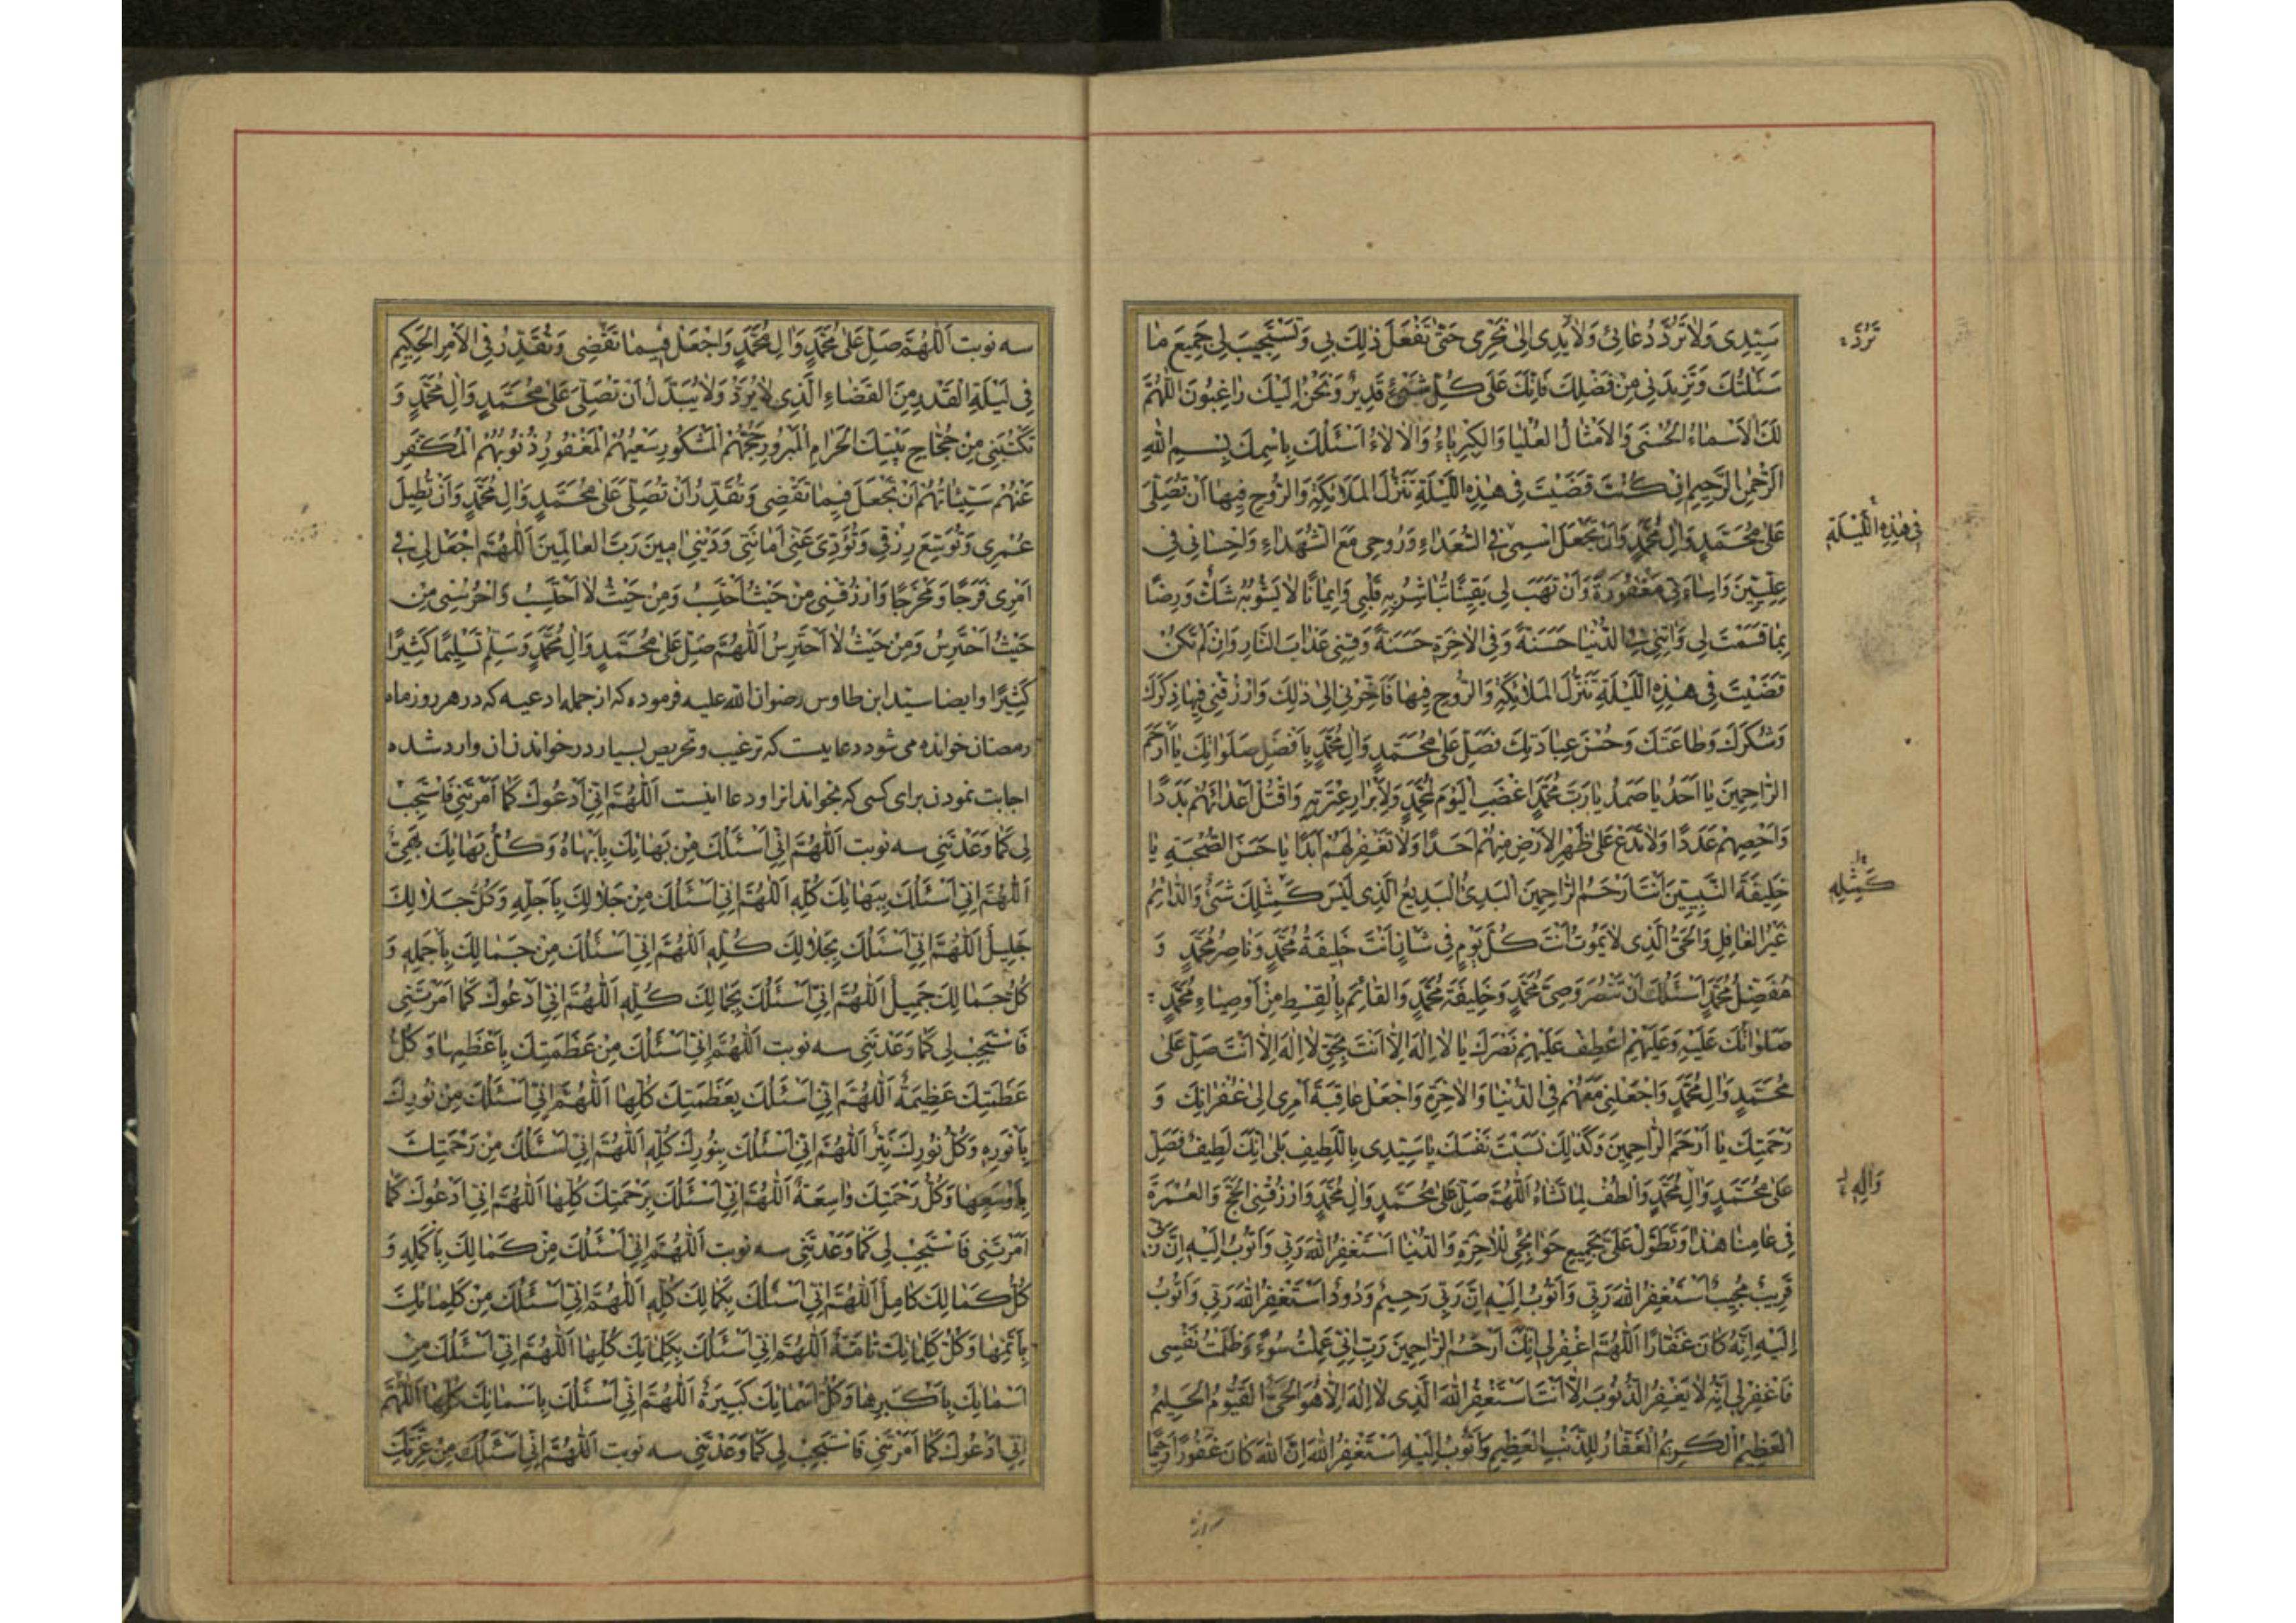 سَيِّدِي وَلَا تَرُدَّ دُعَائِي وَلَا يَدِي إِلَىٰ نَحْرِي حَتَّىٰ تَفْعَلَ ذَٰلِكَ بِي وَتَسْتَجِيبَ لِي جَمِيعَ مَا
سَئَلْتُكَ وَتَزِيدَنِي مِنْ فَضْلِكَ فَاِنَّكَ عَلَىٰ كُلِّ شَيْءٍ قَدِيرٌ وَنَحْنُ اِلَيْكَ رَاغِبُونَ اَللّٰهُمَّ
لَكَ الْاَسْمَاءُ الْحُسْنَىٰ وَالْاَمْثَالُ الْعُلْيَا وَالْكِبْرِيَاءُ وَالْاٰلَاءُ اَسْئَلُكَ بِاسْمِكَ بِسْمِ اللّٰهِ
الرَّحْمٰنِ الرَّحِيمِ اِنْ كُنْتَ قَضَيْتَ فِي هٰذِهِ اللَّيْلَةِ تَنَزُّلَ الْمَلَائِكَةِ وَالرُّوحِ فِيهَا اَنْ تُصَلِّيَ
عَلَىٰ مُحَمَّدٍ وَاٰلِ مُحَمَّدٍ وَاَنْ تَجْعَلَ اسْمِي فِي السُّعَدَاءِ وَرُوحِي مَعَ الشُّهَدَاءِ وَاِحْسَانِي فِي
عِلِّيِّينَ وَاِسَاءَتِي مَغْفُورَةً وَاَنْ تَهَبَ لِي يَقِينًا تُبَاشِرُ بِهِ قَلْبِي وَاِيمَانًا لَا يَشُوبُهُ شَكٌّ وَرِضًا
بِمَا قَسَمْتَ لِي وَاٰتِنِي فِي الدُّنْيَا حَسَنَةً وَفِي الْاٰخِرَةِ حَسَنَةً وَقِنِي عَذَابَ النَّارِ وَاِنْ لَمْ تَكُنْ
قَضَيْتَ فِي هٰذِهِ اللَّيْلَةِ تَنَزُّلَ الْمَلَائِكَةِ وَالرُّوحِ فِيهَا فَاَخِّرْنِي اِلَىٰ ذٰلِكَ وَارْزُقْنِي فِيهَا ذِكْرَكَ
وَشُكْرَكَ وَطَاعَتَكَ وَحُسْنَ عِبَادَتِكَ فَصَلِّ عَلَىٰ مُحَمَّدٍ وَاٰلِ مُحَمَّدٍ بِاَفْضَلِ صَلَوَاتِكَ يَا اَرْحَمَ
الرَّاحِمِينَ يَا اَحَدُ يَا صَمَدُ يَا رَبَّ مُحَمَّدٍ اغْضَبِ الْيَوْمَ لِمُحَمَّدٍ وَلِاَبْرَارِ عِتْرَتِهِ وَاقْتُلْ اَعْدَائَهُمْ بَدَدًا
وَاَحْصِهِمْ عَدَدًا وَلَا تَدَعْ عَلَىٰ ظَهْرِ الْاَرْضِ مِنْهُمْ اَحَدًا وَلَا تَغْفِرْ لَهُمْ اَبَدًا يَا حَسَنَ الصُّحْبَةِ يَا
خَلِيفَةَ النَّبِيِّينَ اَنْتَ اَرْحَمُ الرَّاحِمِينَ الْبَدِيءُ الْبَدِيعُ الَّذِي لَيْسَ كَمِثْلِكَ شَيْءٌ وَالدَّائِمُ
غَيْرُ الْغَافِلِ وَالْحَيُّ الَّذِي لَا يَمُوتُ اَنْتَ كُلَّ يَوْمٍ فِي شَاْنٍ اَنْتَ خَلِيفَةُ مُحَمَّدٍ وَنَاصِرُ مُحَمَّدٍ وَ
مُفَضِّلُ مُحَمَّدٍ اَسْئَلُكَ اَنْ تَنْصُرَ وَصِيَّ مُحَمَّدٍ وَخَلِيفَةَ مُحَمَّدٍ وَالْقَائِمَ بِالْقِسْطِ مِنْ اَوْصِيَاءِ مُحَمَّدٍ
صَلَوَاتُكَ عَلَيْهِ وَعَلَيْهِمْ اِعْطِفْ عَلَيْهِمْ نَصْرَكَ يَا لَا اِلٰهَ اِلَّا اَنْتَ بِحَقِّ لَا اِلٰهَ اِلَّا اَنْتَ صَلِّ عَلَىٰ
مُحَمَّدٍ وَاٰلِ مُحَمَّدٍ وَاجْعَلْنِي مَعَهُمْ فِي الدُّنْيَا وَالْاٰخِرَةِ وَاجْعَلْ عَاقِبَةَ اَمْرِي اِلَىٰ غُفْرَانِكَ وَ
رَحْمَتِكَ يَا اَرْحَمَ الرَّاحِمِينَ وَكَذٰلِكَ نَسَبْتَ نَفْسَكَ يَا سَيِّدِي بِاللَّطِيفِ بَلَىٰ اِنَّكَ لَطِيفٌ فَصَلِّ
عَلَىٰ مُحَمَّدٍ وَاٰلِ مُحَمَّدٍ وَالْطُفْ لِمَا تَشَاءُ اَللّٰهُمَّ صَلِّ عَلَىٰ مُحَمَّدٍ وَاٰلِ مُحَمَّدٍ وَارْزُقْنِي الْحَجَّ وَالْعُمْرَةَ
فِي عَامِنَا هٰذَا وَتَطَوَّلْ عَلَيَّ بِجَمِيعِ حَوَائِجِي لِلْاٰخِرَةِ وَالدُّنْيَا اَسْتَغْفِرُ اللّٰهَ رَبِّي وَاَتُوبُ اِلَيْهِ اِنَّ رَبِّي
قَرِيبٌ مُجِيبٌ اَسْتَغْفِرُ اللّٰهَ رَبِّي وَاَتُوبُ اِلَيْهِ اِنَّ رَبِّي رَحِيمٌ وَدُودٌ اَسْتَغْفِرُ اللّٰهَ رَبِّي وَاَتُوبُ
اِلَيْهِ اِنَّهُ كَانَ غَفَّارًا اَللّٰهُمَّ اغْفِرْ لِي اِنَّكَ اَرْحَمُ الرَّاحِمِينَ رَبِّ اِنِّي عَمِلْتُ سُوءً وَظَلَمْتُ نَفْسِي
فَاغْفِرْ لِي اِنَّهُ لَا يَغْفِرُ الذُّنُوبَ اِلَّا اَنْتَ اَسْتَغْفِرُ اللّٰهَ الَّذِي لَا اِلٰهَ اِلَّا هُوَ الْحَيُّ الْقَيُّومُ الْحَلِيمُ
الْعَظِيمُ الْكَرِيمُ الْغَفَّارُ لِلذَّنْبِ الْعَظِيمِ وَاَتُوبُ اِلَيْهِ اَسْتَغْفِرُ اللّٰهَ اِنَّ اللّٰهَ كَانَ غَفُورًا رَحِيمًا
تَرُدَّ
فِي هٰذِهِ اللَّيْلَةِ
كَمِثْلِهِ
وَاٰلِهِ
سه نوبت اَللّٰهُمَّ صَلِّ عَلَىٰ مُحَمَّدٍ وَاٰلِ مُحَمَّدٍ وَاجْعَلْ فِيمَا تَقْضِي وَتُقَدِّرُ فِي الْاَمْرِ الْحَكِيمِ
فِي لَيْلَةِ الْقَدْرِ مِنَ الْقَضَاءِ الَّذِي لَا يُرَدُّ وَلَا يُبَدَّلُ اَنْ تُصَلِّيَ عَلَىٰ مُحَمَّدٍ وَاٰلِ مُحَمَّدٍ وَ
تَكْتُبَنِي مِنْ حُجَّاجِ بَيْتِكَ الْحَرَامِ الْمَبْرُورِ حَجُّهُمْ الْمَشْكُورِ سَعْيُهُمْ الْمَغْفُورِ ذُنُوبُهُمْ الْمُكَفَّرِ
عَنْهُمْ سَيِّئَاتُهُمْ اَنْ تَجْعَلَ فِيمَا تَقْضِي وَتُقَدِّرُ اَنْ تُصَلِّيَ عَلَىٰ مُحَمَّدٍ وَاٰلِ مُحَمَّدٍ وَاَنْ تُطِيلَ
عُمْرِي وَتُوَسِّعَ رِزْقِي وَتُؤَدِّيَ عَنِّي اَمَانَتِي وَدَيْنِي اٰمِينَ رَبَّ الْعَالَمِينَ اَللّٰهُمَّ اجْعَلْ لِي فِي
اَمْرِي فَرَجًا وَمَخْرَجًا وَارْزُقْنِي مِنْ حَيْثُ اَحْتَسِبُ وَمِنْ حَيْثُ لَا اَحْتَسِبُ وَاحْرُسْنِي مِنْ
حَيْثُ اَحْتَرِسُ وَمِنْ حَيْثُ لَا اَحْتَرِسُ اَللّٰهُمَّ صَلِّ عَلَىٰ مُحَمَّدٍ وَاٰلِ مُحَمَّدٍ وَسَلِّمْ تَسْلِيمًا كَثِيرًا
كَثِيرًا وايضا سيّد ابن طاوس رضوان الله عليه فرموده كه از جمله ادعيه كه در هر روز ماه
رمضان خوانده مى شود دعاييست كه ترغيب وتحريص بسيار در خواندن ان وارد شده
اجابت نمودن براى كسى كه بخواند انرا ودعا اينست اَللّٰهُمَّ اِنِّي اَدْعُوكَ كَمَا اَمَرْتَنِي فَاسْتَجِبْ
لِي كَمَا وَعَدْتَنِي سه نوبت اَللّٰهُمَّ اِنِّي اَسْئَلُكَ مِنْ بَهَائِكَ بِاَبْهَاهُ وَكُلُّ بَهَائِكَ بَهِيٌّ
اَللّٰهُمَّ اِنِّي اَسْئَلُكَ بِبَهَائِكَ كُلِّهِ اَللّٰهُمَّ اِنِّي اَسْئَلُكَ مِنْ جَلَالِكَ بِاَجَلِّهِ وَكُلُّ جَلَالِكَ
جَلِيلٌ اَللّٰهُمَّ اِنِّي اَسْئَلُكَ بِجَلَالِكَ كُلِّهِ اَللّٰهُمَّ اِنِّي اَسْئَلُكَ مِنْ جَمَالِكَ بِاَجْمَلِهِ وَ
كُلُّ جَمَالِكَ جَمِيلٌ اَللّٰهُمَّ اِنِّي اَسْئَلُكَ بِجَمَالِكَ كُلِّهِ اَللّٰهُمَّ اِنِّي اَدْعُوكَ كَمَا اَمَرْتَنِي
فَاسْتَجِبْ لِي كَمَا وَعَدْتَنِي سه نوبت اَللّٰهُمَّ اِنِّي اَسْئَلُكَ مِنْ عَظَمَتِكَ بِاَعْظَمِهَا وَكُلُّ
عَظَمَتِكَ عَظِيمَةٌ اَللّٰهُمَّ اِنِّي اَسْئَلُكَ بِعَظَمَتِكَ كُلِّهَا اَللّٰهُمَّ اِنِّي اَسْئَلُكَ مِنْ نُورِكَ
بِاَنْوَرِهِ وَكُلُّ نُورِكَ نَيِّرٌ اَللّٰهُمَّ اِنِّي اَسْئَلُكَ بِنُورِكَ كُلِّهِ اَللّٰهُمَّ اِنِّي اَسْئَلُكَ مِنْ رَحْمَتِكَ
بِاَوْسَعِهَا وَكُلُّ رَحْمَتِكَ وَاسِعَةٌ اَللّٰهُمَّ اِنِّي اَسْئَلُكَ بِرَحْمَتِكَ كُلِّهَا اَللّٰهُمَّ اِنِّي اَدْعُوكَ كَمَا
اَمَرْتَنِي فَاسْتَجِبْ لِي كَمَا وَعَدْتَنِي سه نوبت اَللّٰهُمَّ اِنِّي اَسْئَلُكَ مِنْ كَمَالِكَ بِاَكْمَلِهِ وَ
كُلُّ كَمَالِكَ كَامِلٌ اَللّٰهُمَّ اِنِّي اَسْئَلُكَ بِكَمَالِكَ كُلِّهِ اَللّٰهُمَّ اِنِّي اَسْئَلُكَ مِنْ كَلِمَاتِكَ
بِاَتَمِّهَا وَكُلُّ كَلِمَاتِكَ تَامَّةٌ اَللّٰهُمَّ اِنِّي اَسْئَلُكَ بِكَلِمَاتِكَ كُلِّهَا اَللّٰهُمَّ اِنِّي اَسْئَلُكَ مِنْ
اَسْمَائِكَ بِاَكْبَرِهَا وَكُلُّ اَسْمَائِكَ كَبِيرَةٌ اَللّٰهُمَّ اِنِّي اَسْئَلُكَ بِاَسْمَائِكَ كُلِّهَا اَللّٰهُمَّ
اِنِّي اَدْعُوكَ كَمَا اَمَرْتَنِي فَاسْتَجِبْ لِي كَمَا وَعَدْتَنِي سه نوبت اَللّٰهُمَّ اِنِّي اَسْئَلُكَ مِنْ عِزَّتِكَ